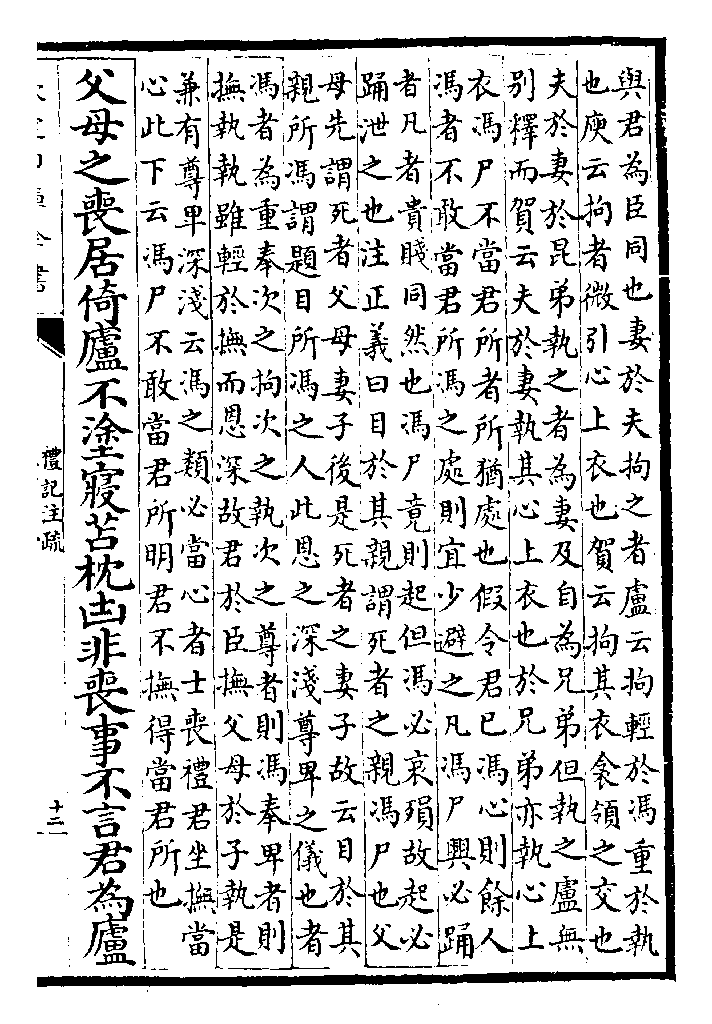 與君為臣同也妻於夫拘之者盧云拘輕於馮重於執
也庾云拘者微引心上衣也賀云拘其衣衾領之交也
夫於妻於昆弟執之者為妻及自為兄弟但執之盧無
別釋而賀云夫於妻執其心上衣也於兄弟亦執心上
衣馮尸不當君所者所猶處也假令君已馮心則餘人
馮者不敢當君所馮之處則宜少避之凡馮尸興必踊
者凡者貴賤同然也馮尸竟則起但馮必哀殞故起必
踊泄之也注正義曰目於其親謂死者之親馮尸也父
母先謂死者父母妻子後是死者之妻子故云目於其
親所馮謂題目所馮之人此恩之深淺尊卑之儀也者
馮者為重奉次之拘次之執次之尊者則馮奉卑者則
撫執執雖輕於撫而恩深故君於臣撫父母於子執是
兼有尊卑深淺云馮之類必當心者士喪禮君坐撫當
心此下云馮尸不敢當君所明君不撫得當君所也
父母之喪居倚廬不塗寢苫枕凷非喪事不言君為廬
禮記注疏
十二